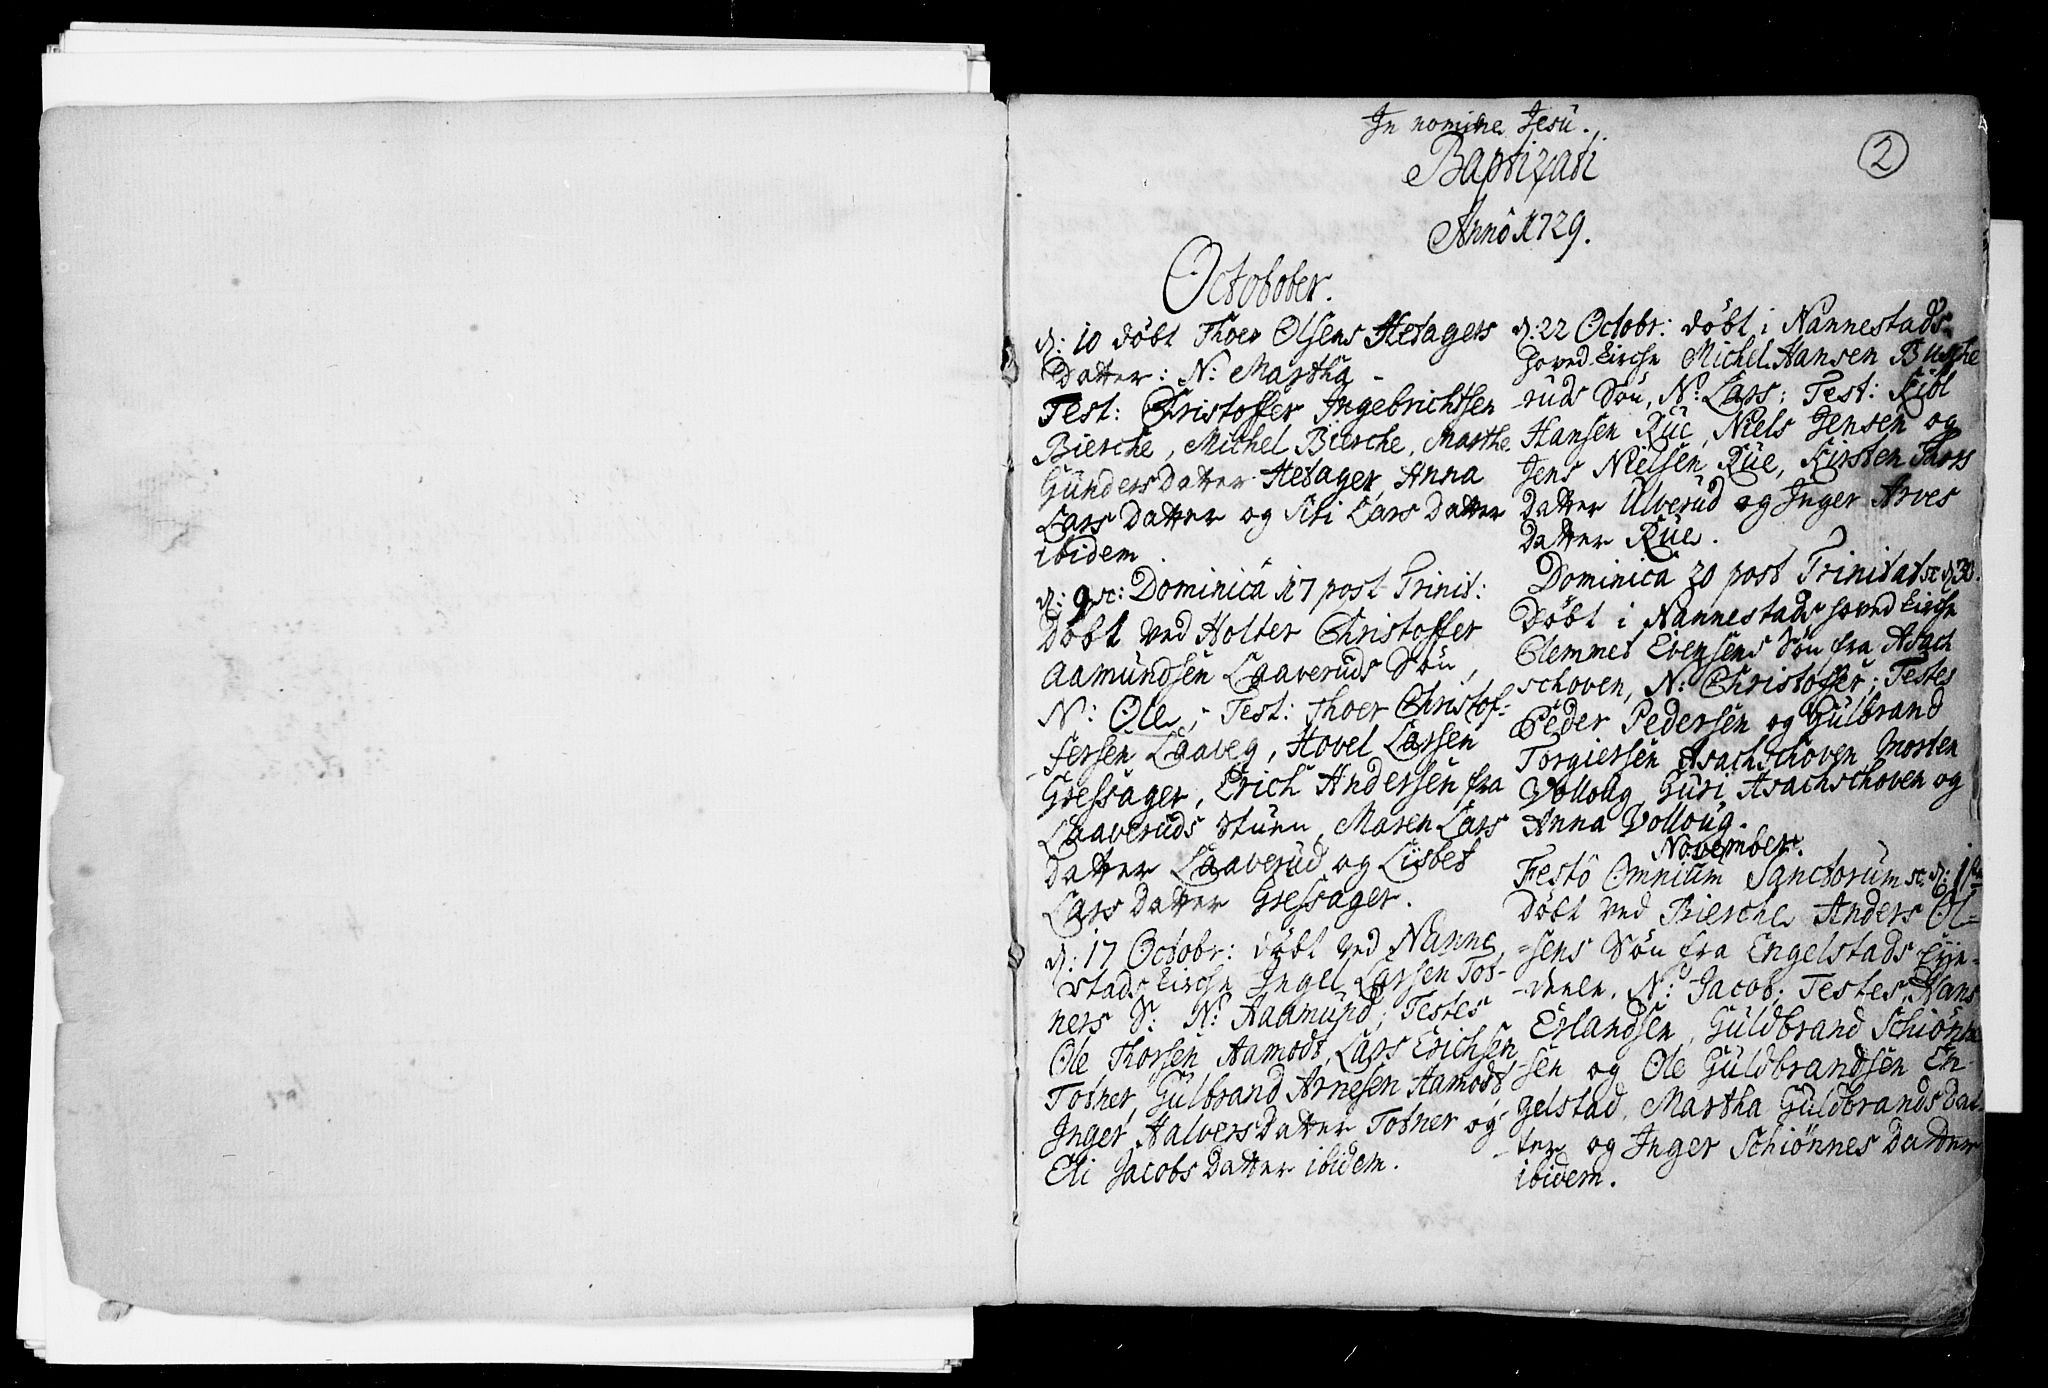 In nomine Jesu.
Baptizati
2
Anno 1729.
Octobober.
d: 10 döbt Thoer Olsens Hetagers
Datter: N: Martha
Test: Christoffer Ingebrichtsen
Bierche, Michel Bierche, Marthe
Gunders Datter Hetager, Anna
Lars Datter og Siri Lars Datter
ibidem.
d: 9 sc: Dominica 17 post Trinit:
Döbt ved Holter Christoffer
Aamundsen Laaveruds Sön,
N: Ole; Test: Thoer Christof-
fersen Laaveg, Hovel Larsen
Gressager, Erich Andersen fra
Laaveruds Stuen, Maren Lars
Datter Laaverud og Lisbet
Lars Datter Gressager.
d: 17 Octobr: döbt ved Nanne
stads Kirche Ingel Larsen Tot-
ners S: N: Aamund; Testes
Ole Thorsen Aamodt, Lars Erichsen
Totner, Gulbrand Arnesen Aamodt,
Inger Halvers Datter Totner og
Eli Jacobs Datter ibidem.
d: 22 Octobr: döbt i Nannestads
hoved Kirche Michel Hansen Busche
ruds Sön, N: Lars; Test: Kield
Hansen Rüe, Niels Jensen og
Jens Nielsen Rüe, Kirsten Lars
Datter Ulverud og Inger Arves
Datter Rüe.
Dominica 20 post Trinitat sc d 30.
Döbt i Nannestads hoved Kirche
Clemmet Evensens Sön fra Asach
schoven, N: Christoffer; Testes
Peder Pedersen og Gulbrand
Torgiersen Asachschoven, Morten
Volloug, Guri Asachschoven og
Anna Volloug.
November.
Festo Omnium Sanctorum sc: d: 1
Döbt ved Bierche Anders Ol-
sens Sön fra Engelstads Eye-
N: Jacob; Testes, Hans
Erlandsen, Guldbrand Schiönne
sen og Ole Guldbrandsen En-
gelstad, Martha Guldbrands Dat-
ter og Inger Schiönnes Datter
ibidem.